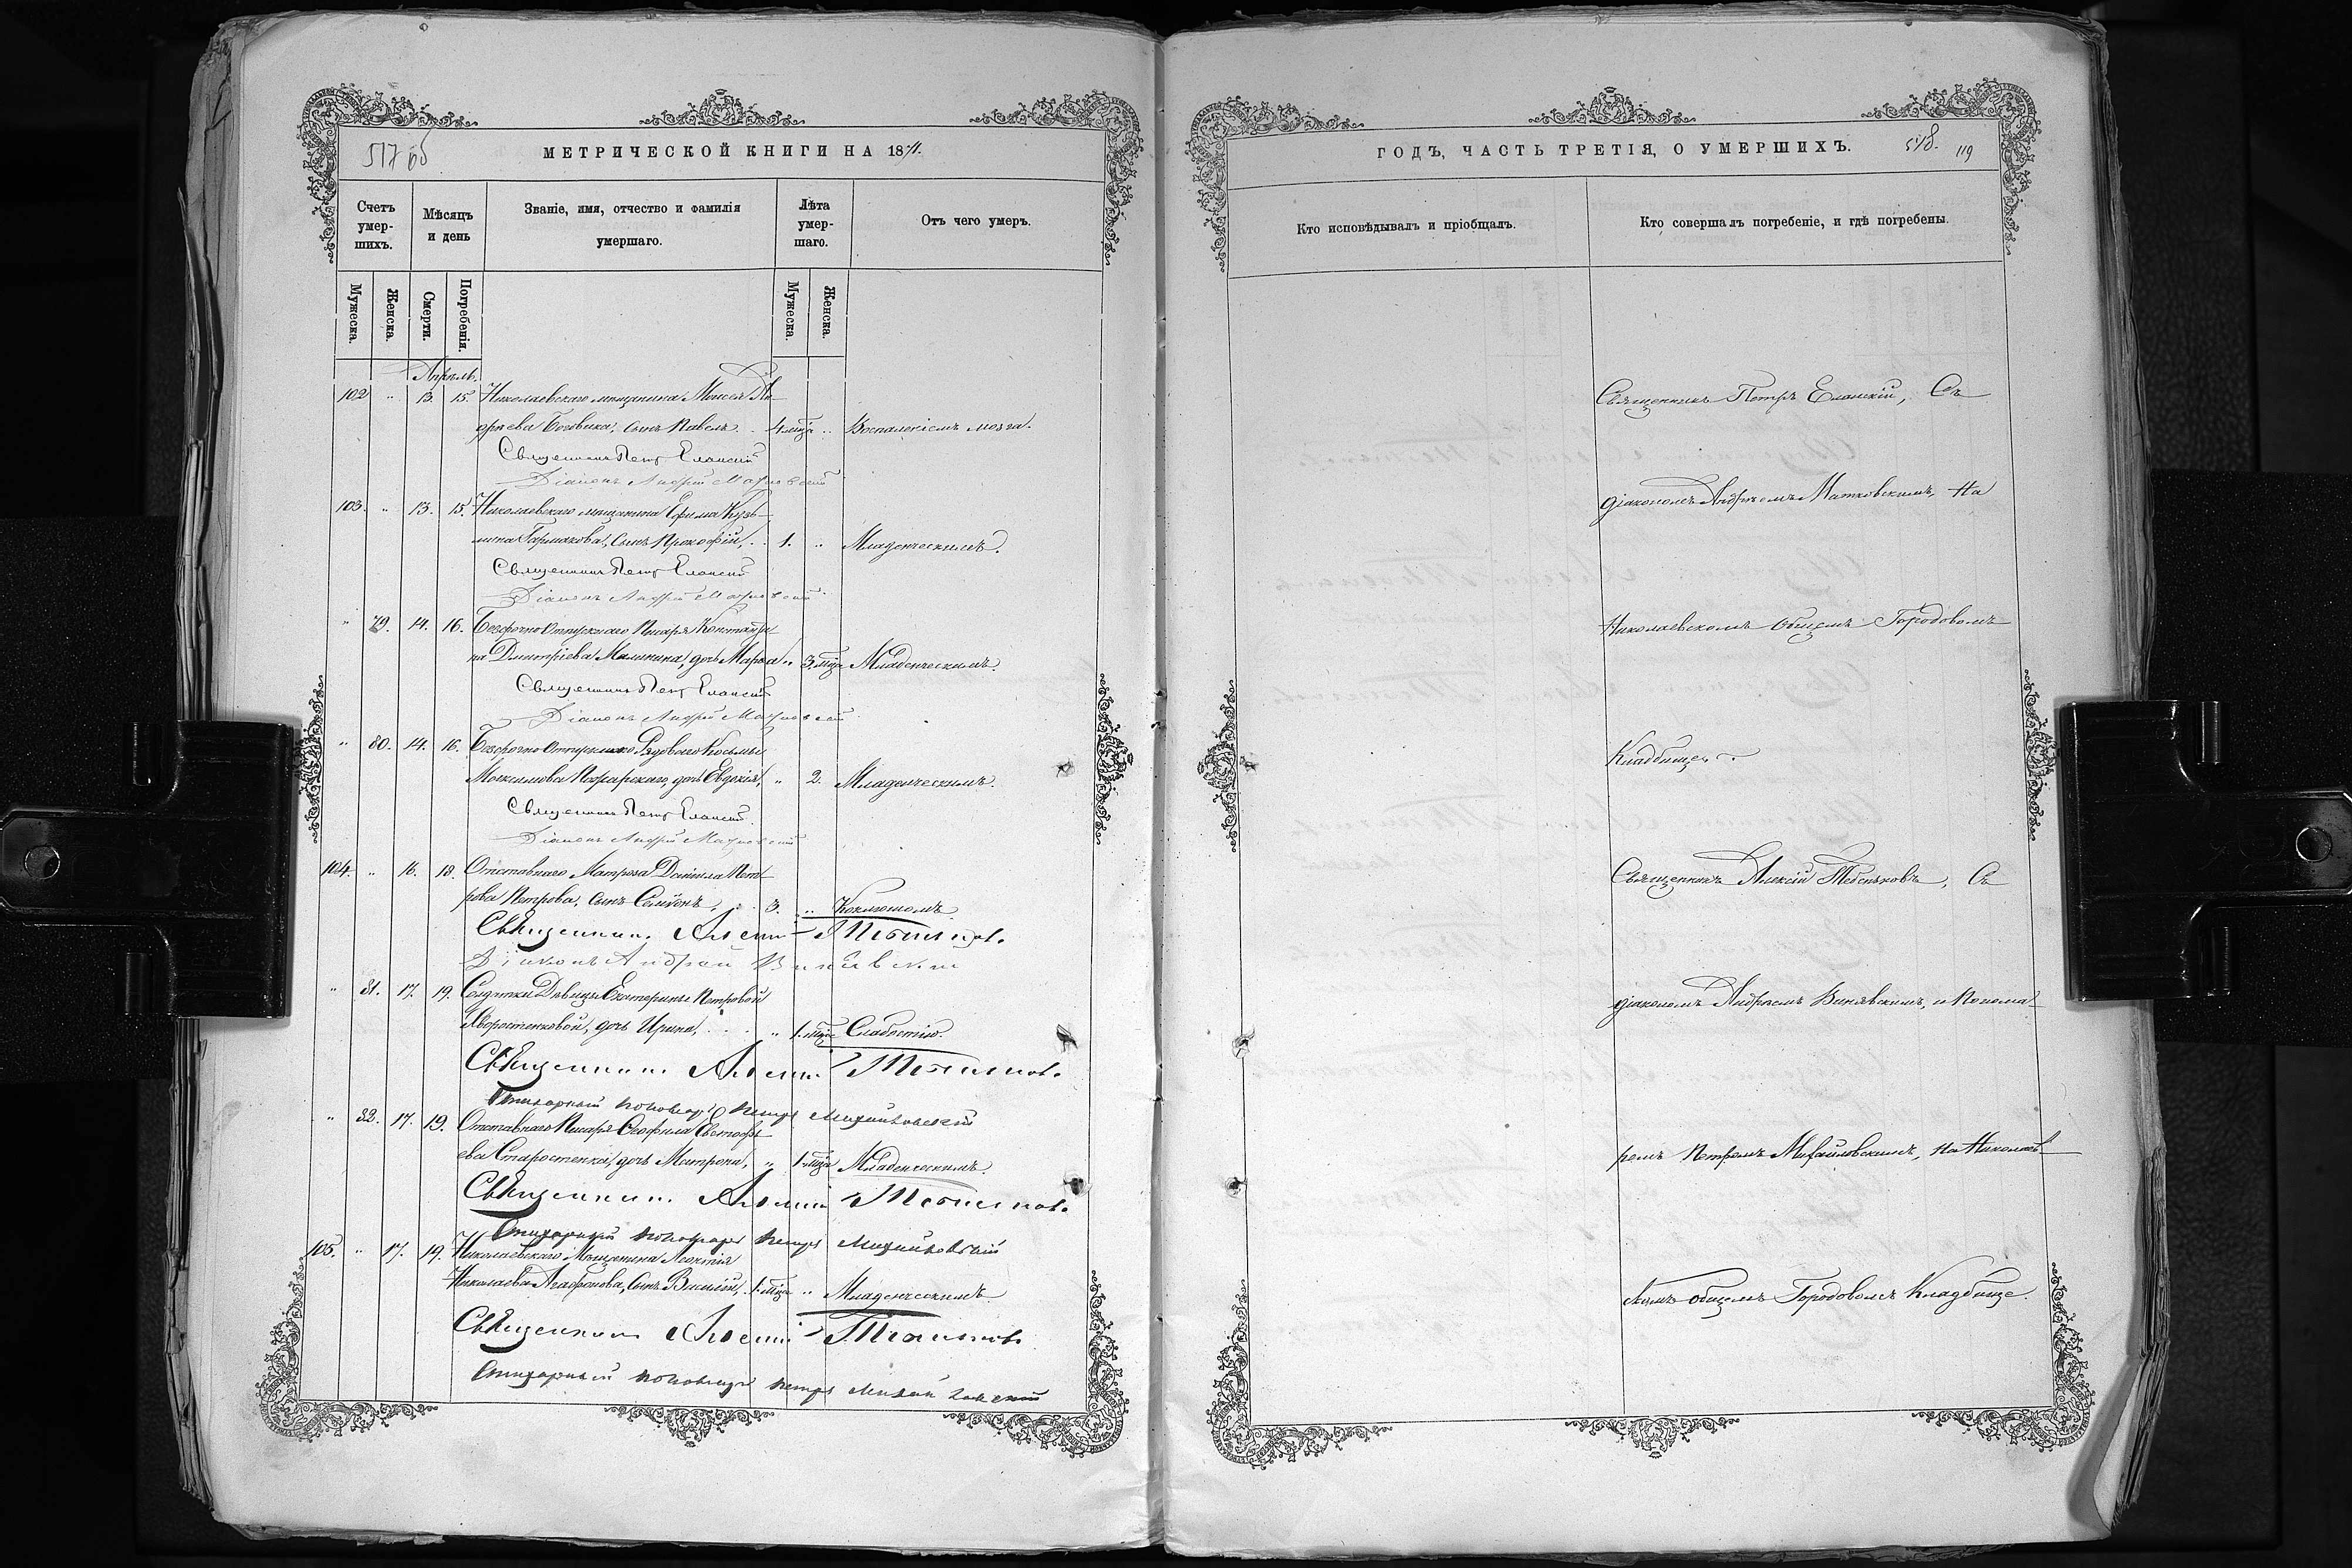 517 об
МЕТРИЧЕСКОЙ КНИГИ НА 1871.
Счетъ умер-шихъ.
Мѣсяцъ и день
Званіе, имя, отчество и фамилія умершаго.
Лѣта умер-шаго.
Отъ чего умеръ.
Мужеска.
Женска.
Смерти.
Погребенія.
Мужеска.
Женска.
Апрѣль.
102 " 13. 15. Николаевскаго мѣщанина Моисея
сынъ Павелъ. 4 мца " Воспаленіемъ мозга.
Священникъ Петръ Еланскій
Діаконъ Андрей
103. " 13. 15. Николаевскаго мѣщанина Ефима Кузь-
мина Гармакова, сынъ Прокофій, 1. " Младенческимъ.
Священникъ Петръ Еланскій
Діаконъ Андрей
" 79. 14. 16. Безсрочно отпускнаго Писаря Константи-
на Дмитріева Малинина, дочь Марѳа " 3 мца Младенческимъ.
Священникъ Петръ Еланскій
Діаконъ Андрей
" 80. 14. 16. Безсрочно отпускнаго Рядоваго Косьмы
Максимова дочь Евдокія, " 2. Младенческимъ.
Священникъ Петръ Еланскій
Діаконъ Андрей
104. " 16. 18. Отставнаго Матроса Даніила Пет-
рова Петрова, сынъ Семёнъ, 3. " Коклюшомъ.
Священникъ Алексій Тебеньковъ.
Діаконъ Андрей Винявскій
" 81. 17. 19. Солдатки Дѣвицы Екатерины Петровой
дочь Ирина, " 1 мца Слабостію.
Священникъ Алексій Тебеньковъ.
Стихарный пономарь Петръ Михайловскій
" 82. 17. 19. Отставнаго Писаря Ѳеофила
ева Старостенка, дочь Матрона, " 1 мца Младенческимъ.
Священникъ Алексій Тебеньковъ.
Стихарный пономарь Петръ Михайловскій
105. " 17. 19. Николаевскаго Мѣщанина Леонтія
Николаева Агафонова, сынъ Василій, 1 мца " Младенческимъ
Священникъ Алексій Тебеньковъ
Стихарный пономарь Петръ Михайловскій
ГОДЪ, ЧАСТЬ ТРЕТІЯ, О УМЕРШИХЪ.
518. 119
Кто исповѣдывалъ и пріобщалъ.
Кто совершалъ погребеніе, и гдѣ погребены.
Священникъ Петръ Еланскій, Съ
діакономъ Андреемъ Матковскимъ, На
Николаевскомъ Общемъ Городовомъ
Кладбищѣ.
Священникъ Алексій Тебеньковъ, Съ
діакономъ Андреемъ Винявскимъ, и Понома-
ремъ Петромъ Михайловскимъ, на Николаев-
скомъ общемъ Городовомъ Кладбище.